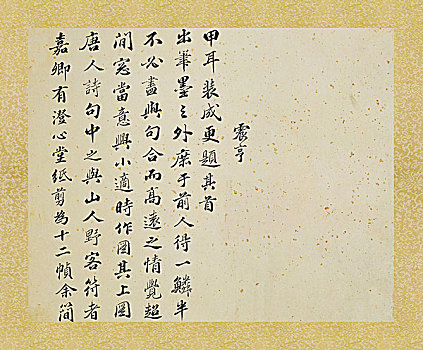 嘉卿有澄心堂紙剪為十二幀余簡
唐人詩句中之與山人野客符者
閒窓當意興小適時作圖其上圖
不必盡與句合而高遠之情覺超
出筆墨之外庶于前人得一鱗半
甲耳裝成更題其首
震亨